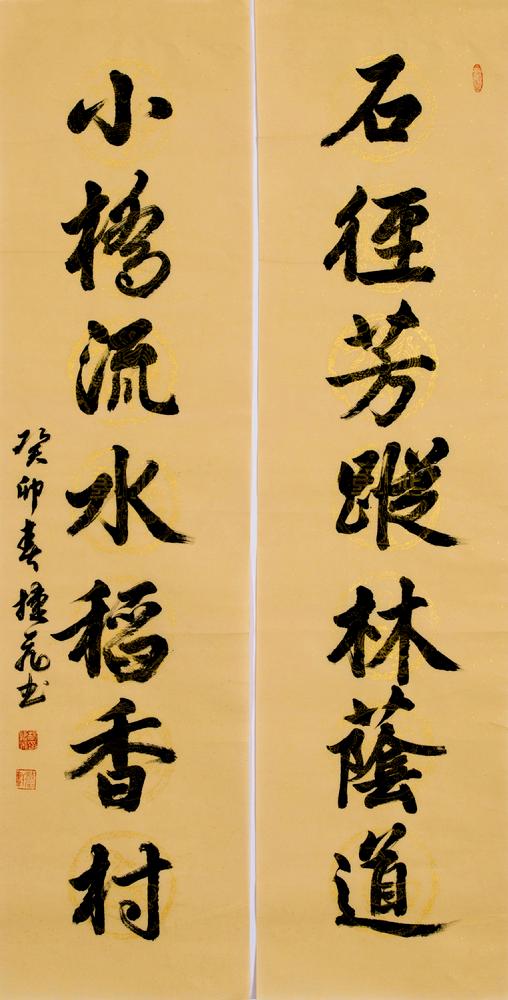 石徑芳蹤林蔭道
小橋流水稻香村
癸卯春捷飛書